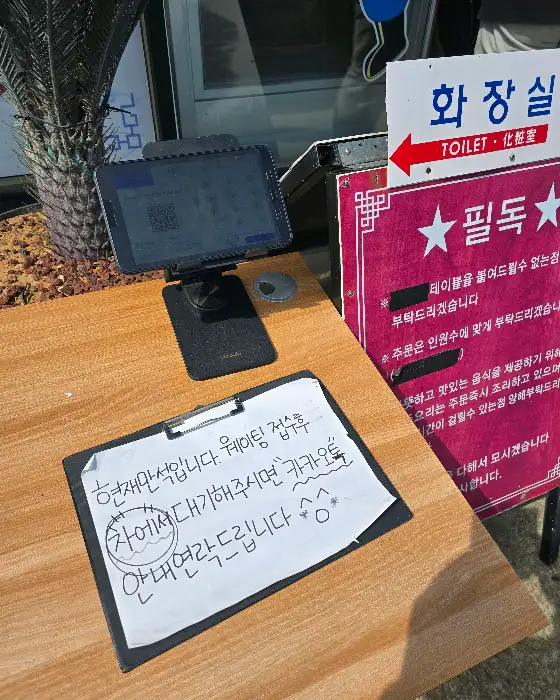 화장실
TOILET · 化粧室
★필독★
※ 테이블을 붙여드릴수 없는점
부탁드리겠습니다
※ 주문은 인원수에 맞게 부탁드리
뜻하고 맛있는 음식을 제공하기 위해
요리는 주문즉시 조리하고 있으며
간이 걸릴수 있는점 양해부탁드
다해서 모시겠습니다
사합니다.
현재만석입니다. 웨이팅 접수후
"차에서" 대기해주시면 "카카오톡"
안내연락드립니다 *^^*